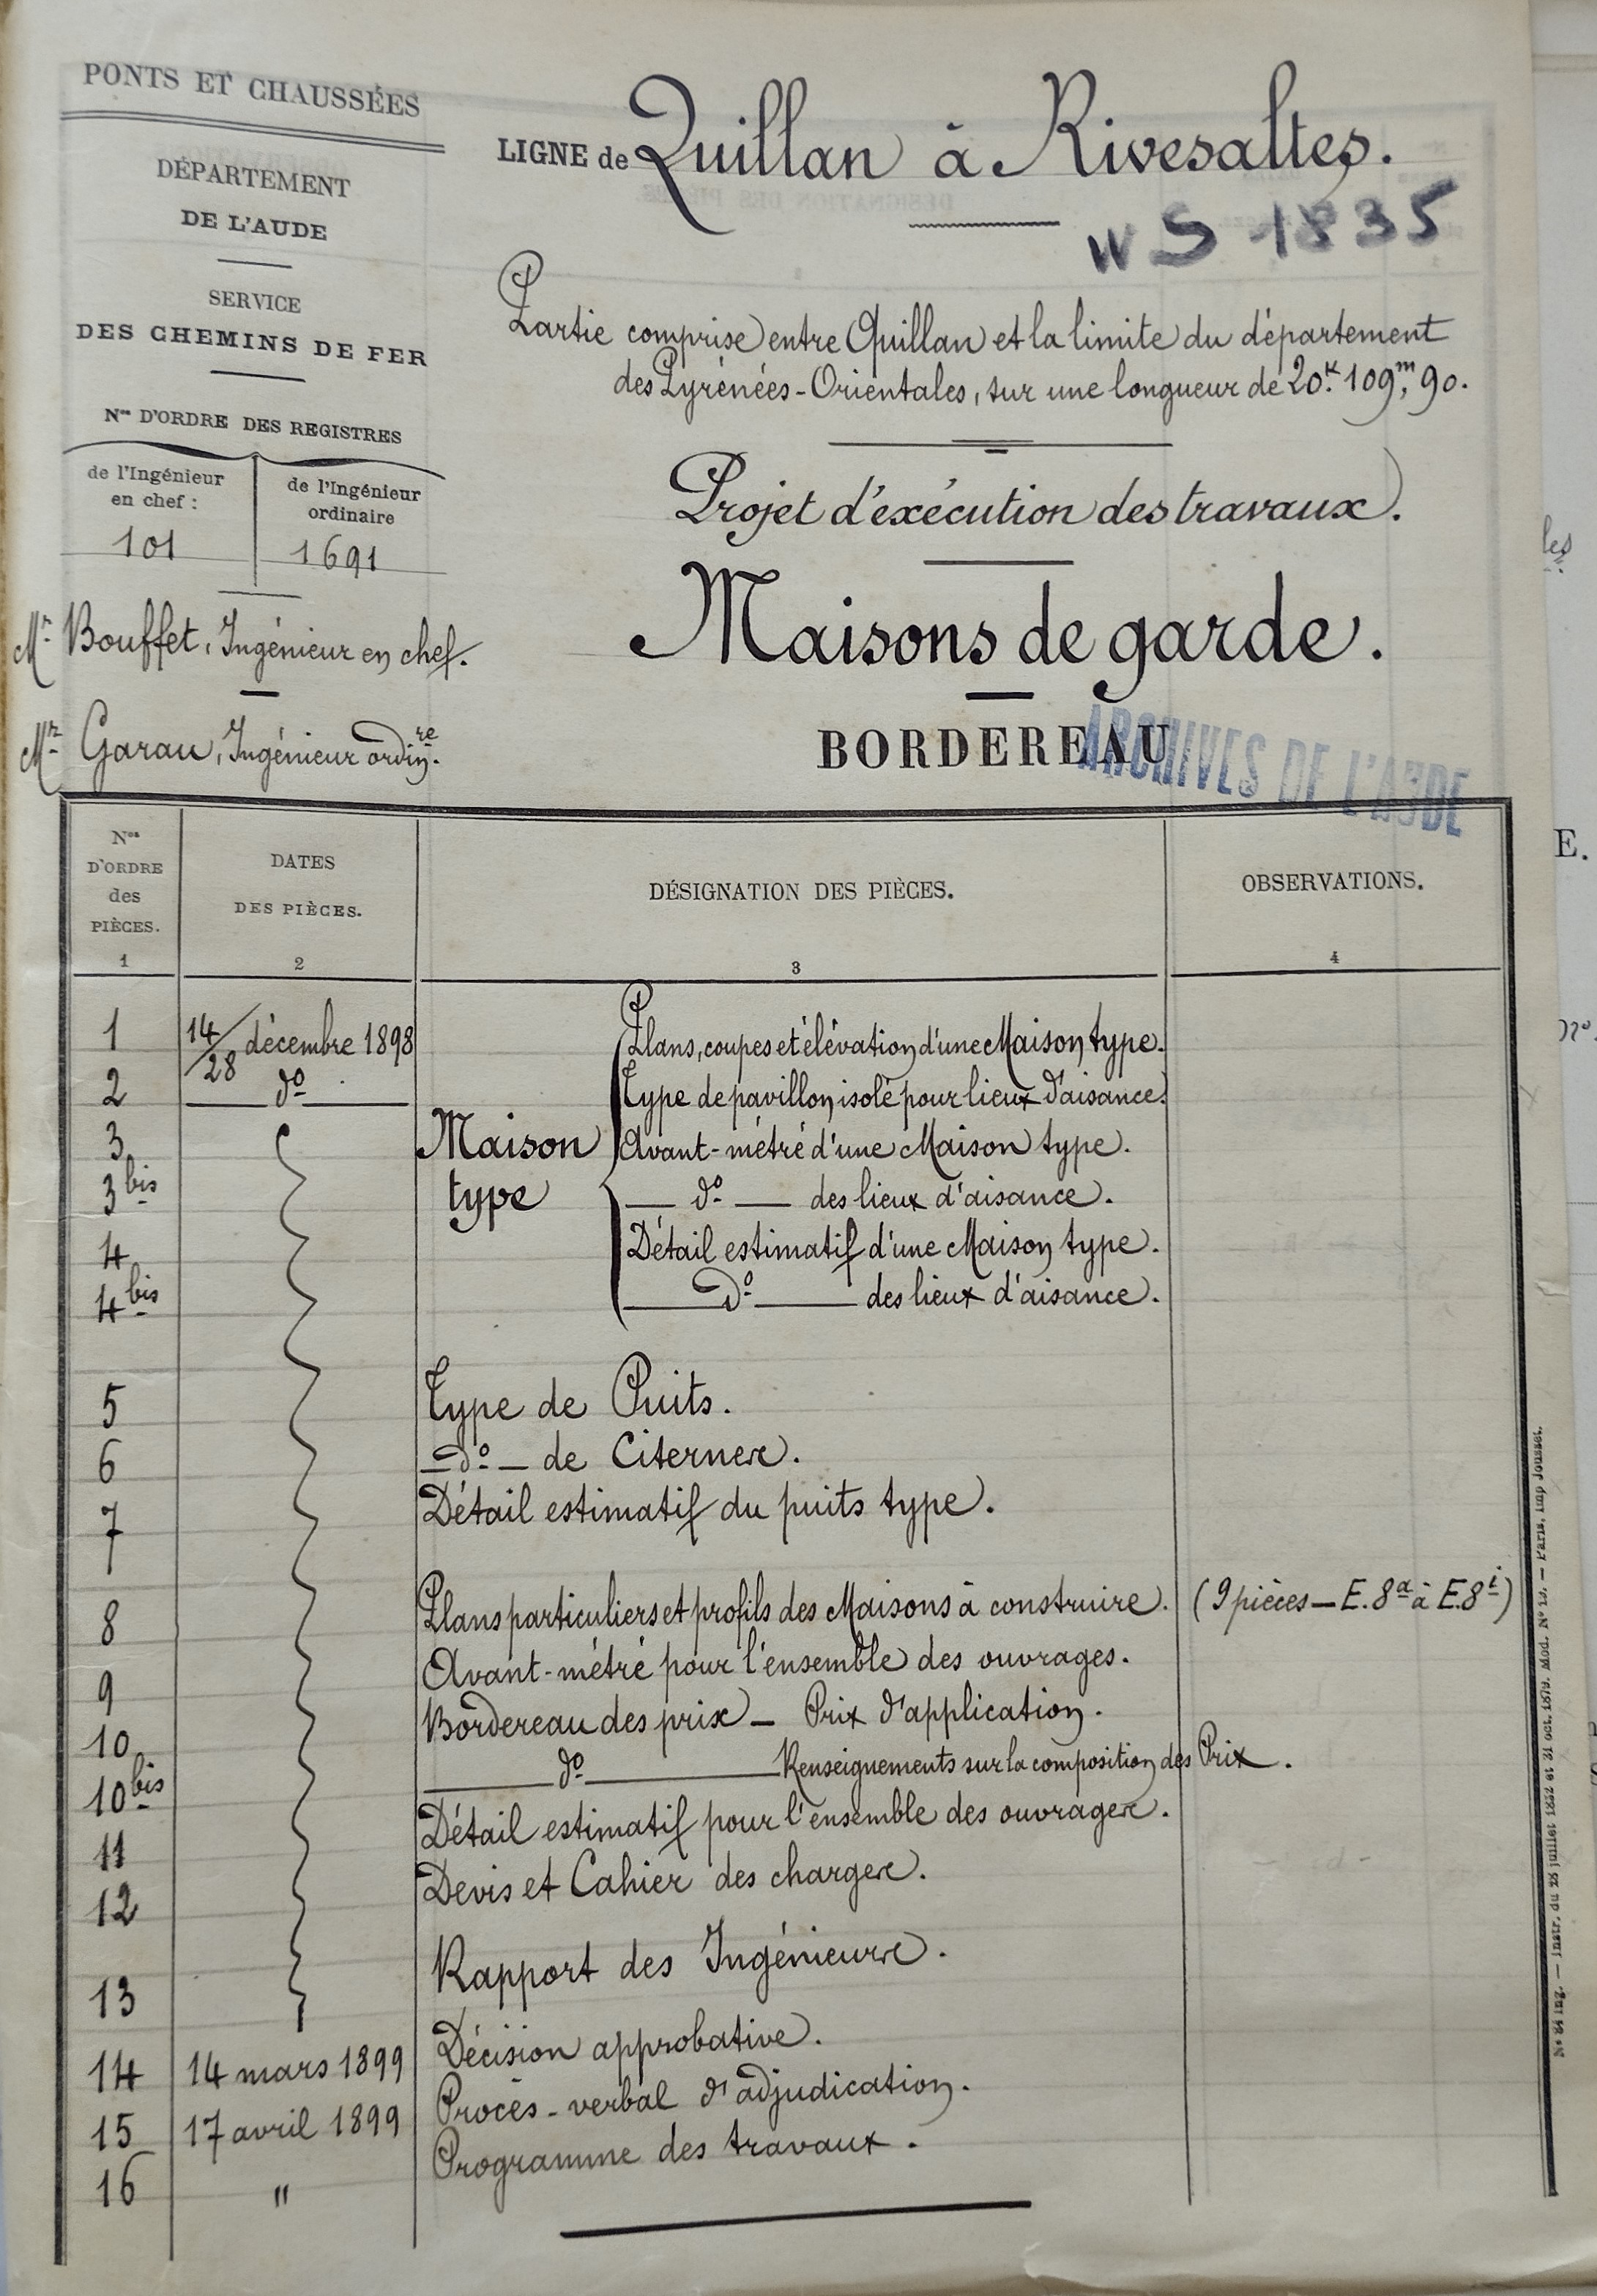 PONTS ET CHAUSSÉES
DÉPARTEMENT
DE L'AUDE
SERVICE
DES CHEMINS DE FER
Nos D'ORDRE DES REGISTRES
de l'Ingénieur
en chef :
101
de l'Ingénieur
ordinaire
1691
Mr Bouffet, Ingénieur en chef.
Mr Garau, Ingénieur ordinre.
LIGNE de Quillan à Rivesaltes.
WS 1835
Partie comprise entre Quillan et la limite du département
des Pyrénées-Orientales, sur une longueur de 20k.109m,90.
Projet d'éxécution des travaux.
Maisons de garde.
BORDEREAU
ARCHIVES DE L'AUDE
Nos D'ORDRE des PIÈCES. DATES DES PIÈCES. DÉSIGNATION DES PIÈCES. OBSERVATIONS.
1 2 3 4
1 14/28 décembre 1898 Plans, coupes et élévation d'une Maison type.
2 do Type de pavillon isolé pour lieux d'aisance.
3 Maison Avant-métré d'une Maison type.
3bis type do des lieux d'aisance.
4 Détail estimatif d'une Maison type.
4bis do des lieux d'aisance.
5 Type de Puits.
6 do de Citernes.
7 Détail estimatif du puits type.
8 Plans particuliers et profils des Maisons à construire. (9 pièces - E.8a à E.8i)
9 Avant-métré pour l'ensemble des ouvrages.
10 Bordereau des prix - Prix d'application.
10bis do Renseignements sur la composition des Prix.
11 Détail estimatif pour l'ensemble des ouvrages.
12 Devis et Cahier des charges.
13 Rapport des Ingénieurs.
14 14 mars 1899 Décision approbative.
15 17 avril 1899 Procès-verbal d'adjudication.
16 " Programme des travaux.
les
E.